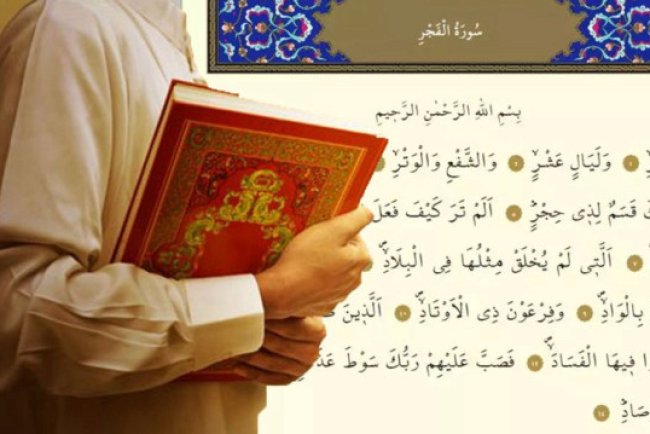 سُورَةُ الْفَجْرِ
بِسْمِ اللهِ الرَّحْمٰنِ الرَّح۪يمِ
وَلَيَالٍ عَشْرٍۙ ﴿٢﴾ وَالشَّفْعِ وَالْوَتْرِۙ
قَسَمٌ لِذ۪ي حِجْرٍۜ ﴿٥﴾ اَلَمْ تَرَ كَيْفَ فَعَلَ
﴿٧﴾ اَلَّت۪ي لَمْ يُخْلَقْ مِثْلُهَا فِي الْبِلَادِۙ
بِالْوَادِۙ ﴿٩﴾ وَفِرْعَوْنَ ذِي الْاَوْتَادِۙ ﴿١٠﴾ اَلَّذ۪ينَ
ف۪يهَا الْفَسَادَۙ ﴿١٢﴾ فَصَبَّ عَلَيْهِمْ رَبُّكَ سَوْطَ
صَادِۜ ﴿١٤﴾